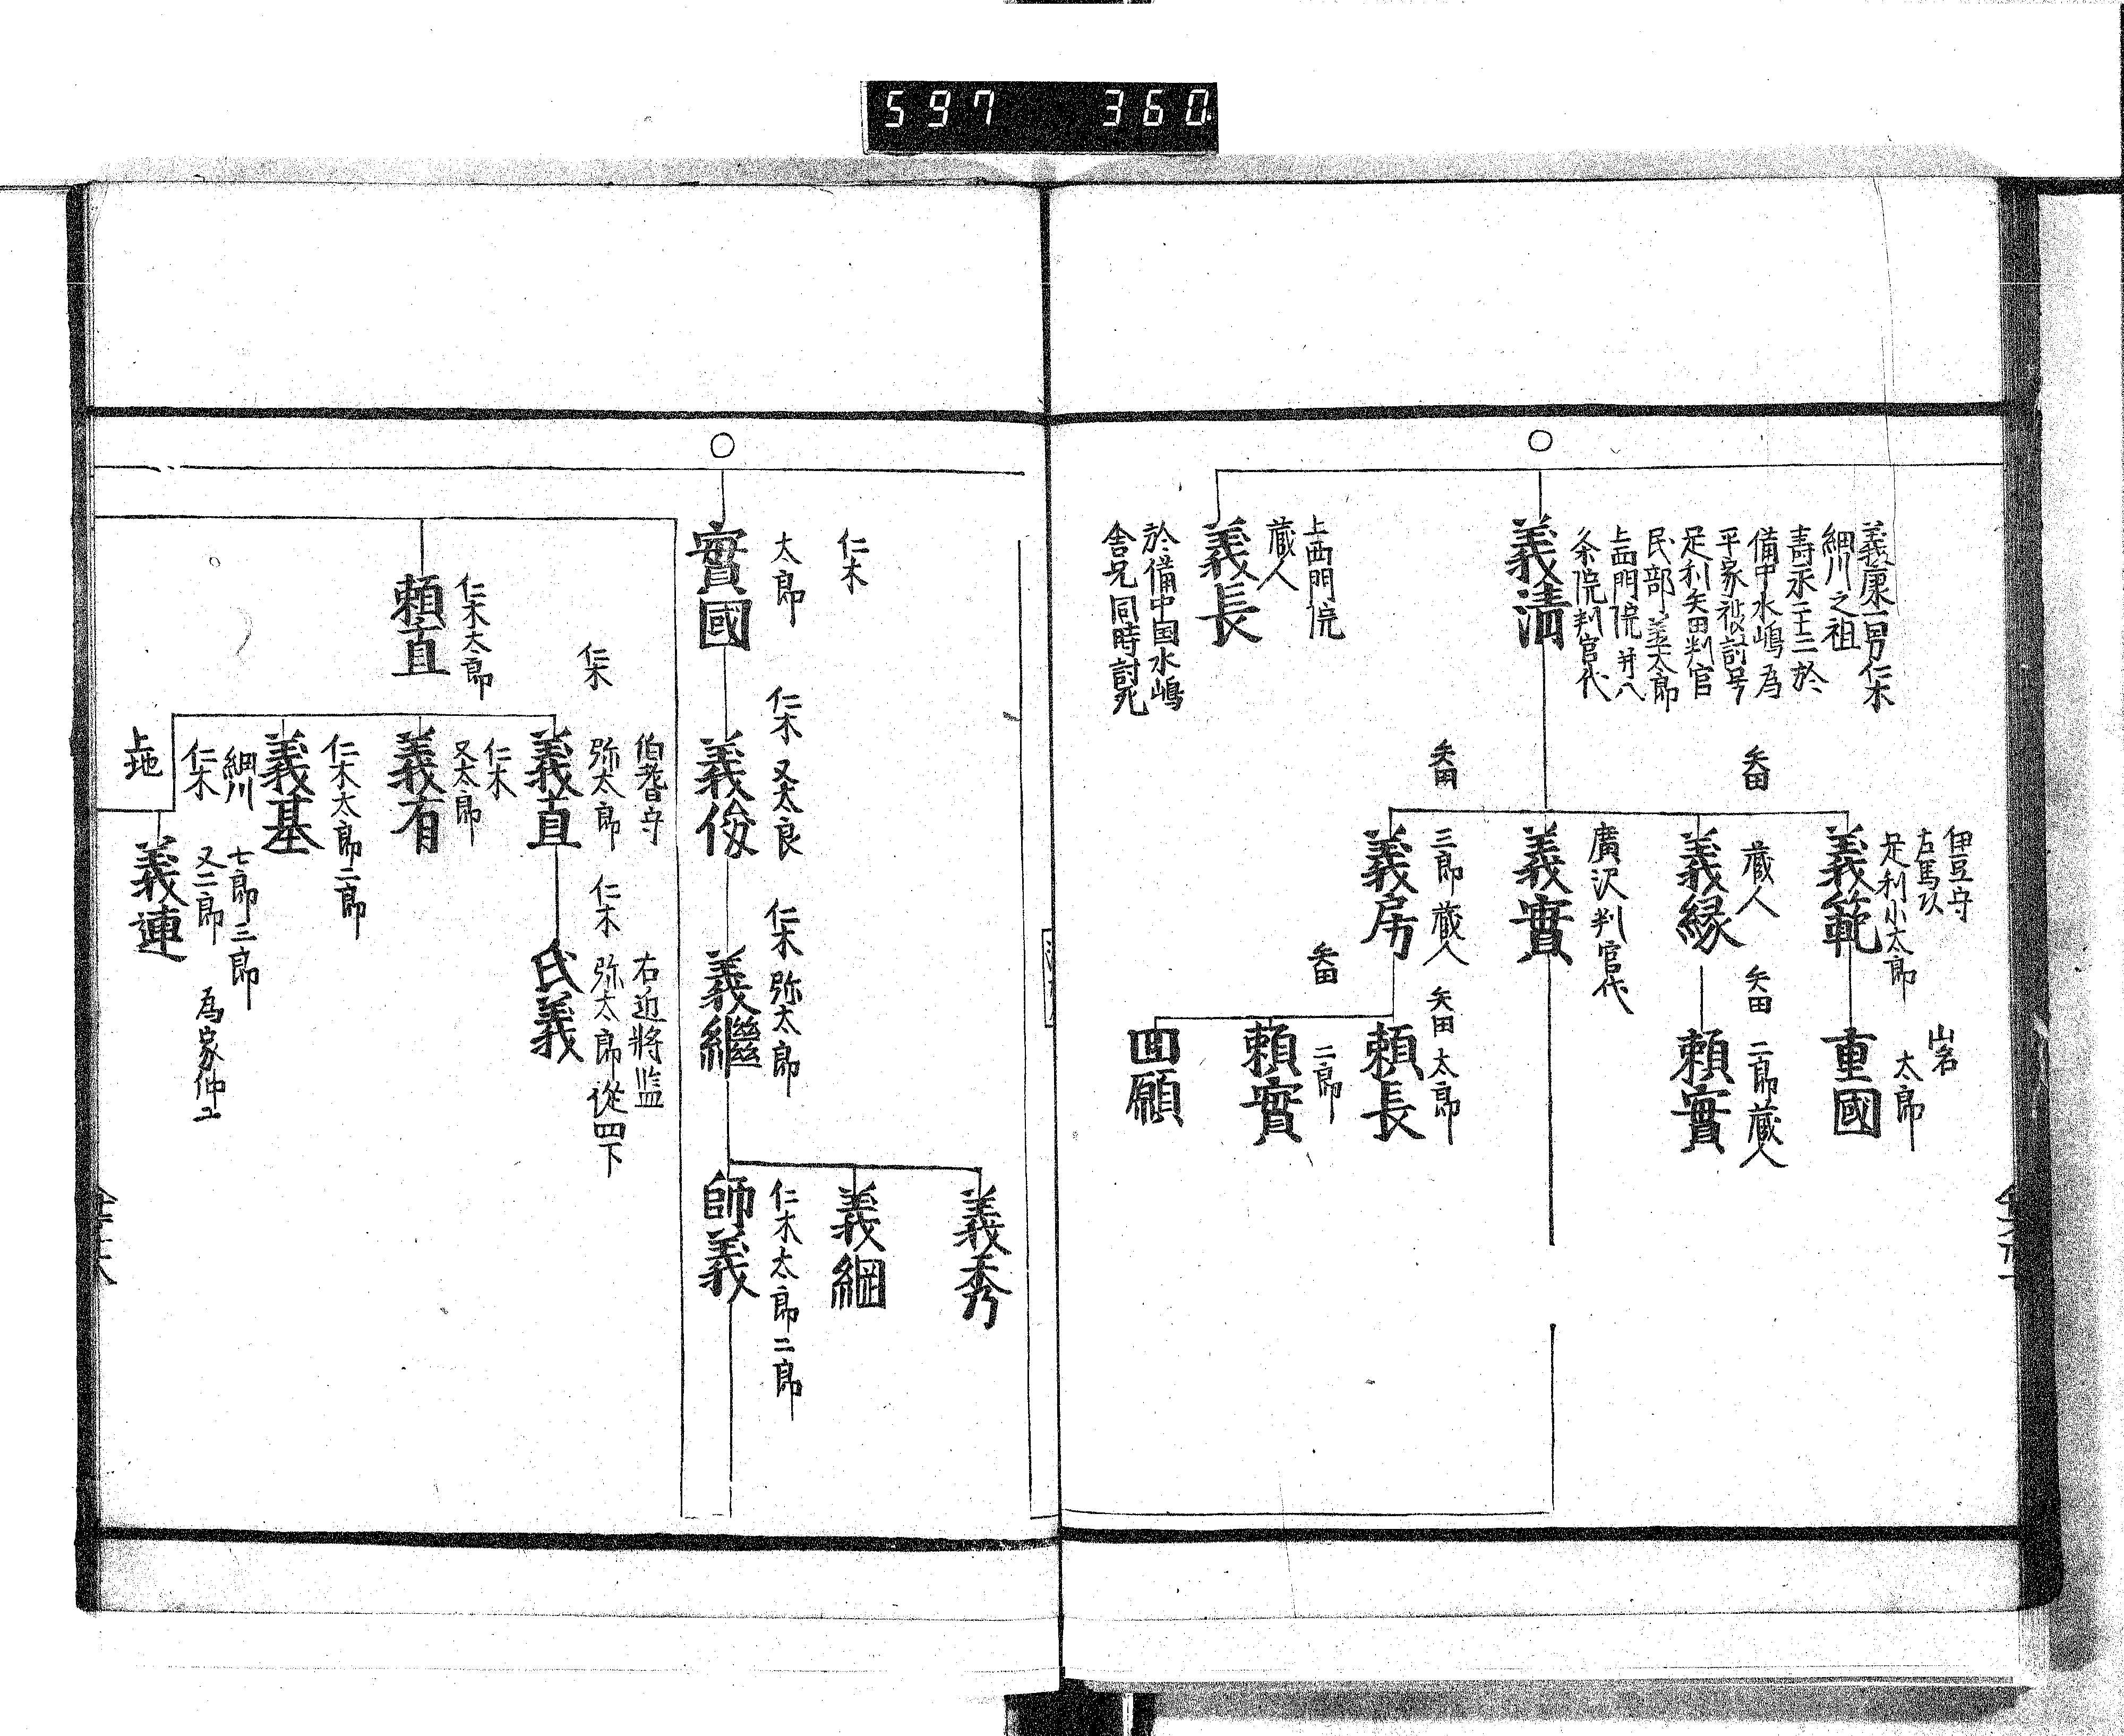 597 360
義康一男仁木
細川之祖
壽永二十二於
備中水嶋為
平家被討号
足利矢田判官
民部義太郎
上西門院并八
条院判官代
義清
上西門院
蔵人
義長
於備中国水嶋
舎兄同時討死
伊豆守
右馬以
足利小太郎
義範
山名
太郎
重國
矢田
蔵人
義縁
矢田
二郎蔵人
頼實
廣沢判官代
義實
矢田
三郎蔵人
義房
矢田太郎
頼長
二郎
頼實
矢田
回願
仁木
太郎
實國
仁木又太良
義俊
仁木弥太郎
義繼
義秀
義綱
仁木太郎二郎
師義
仁木太郎
頼直
伯耆守
弥太郎
仁木
義直
右近将监
弥太郎従四下
仁木
氏義
仁木
又太郎
義有
仁木太郎二郎
義基
細川
仁木
七郎三郎
又二郎
為家仲二
義連
上地